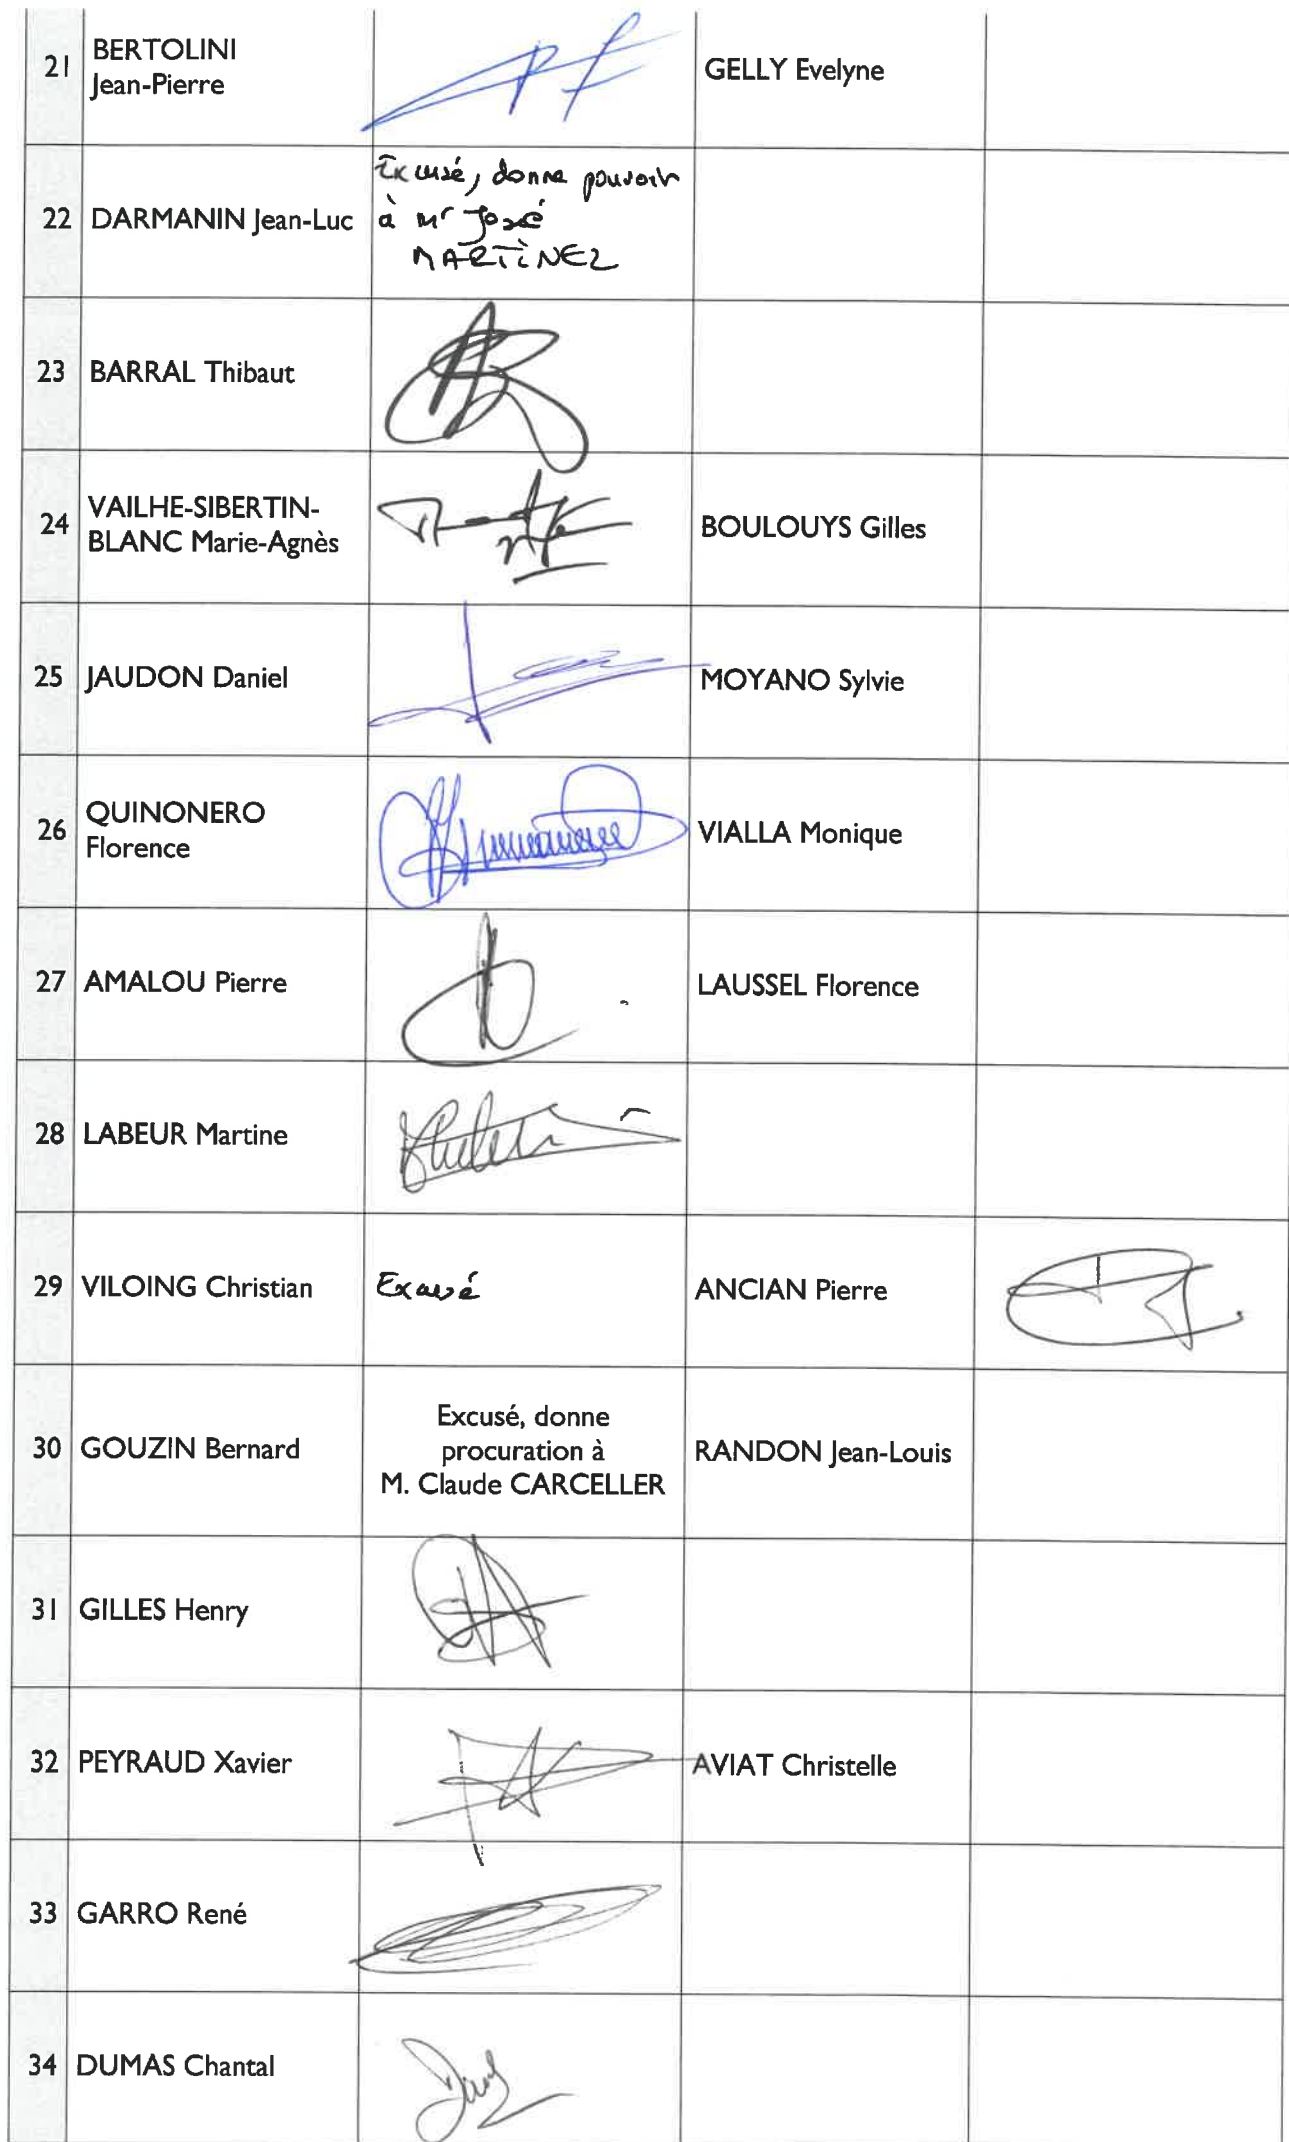 21
BERTOLINI
Jean-Pierre
GELLY Evelyne
22
DARMANIN Jean-Luc
Excusé, donne pouvoir
à Mr José
MARTINEZ
23
BARRAL Thibaut
24
VAILHE-SIBERTIN-
BLANC Marie-Agnès
BOULOUYS Gilles
25
JAUDON Daniel
MOYANO Sylvie
26
QUINONERO
Florence
VIALLA Monique
27
AMALOU Pierre
LAUSSEL Florence
28
LABEUR Martine
29
VILOING Christian
Excusé
ANCIAN Pierre
30
GOUZIN Bernard
Excusé, donne
procuration à
M. Claude CARCELLER
RANDON Jean-Louis
31
GILLES Henry
32
PEYRAUD Xavier
AVIAT Christelle
33
GARRO René
34
DUMAS Chantal